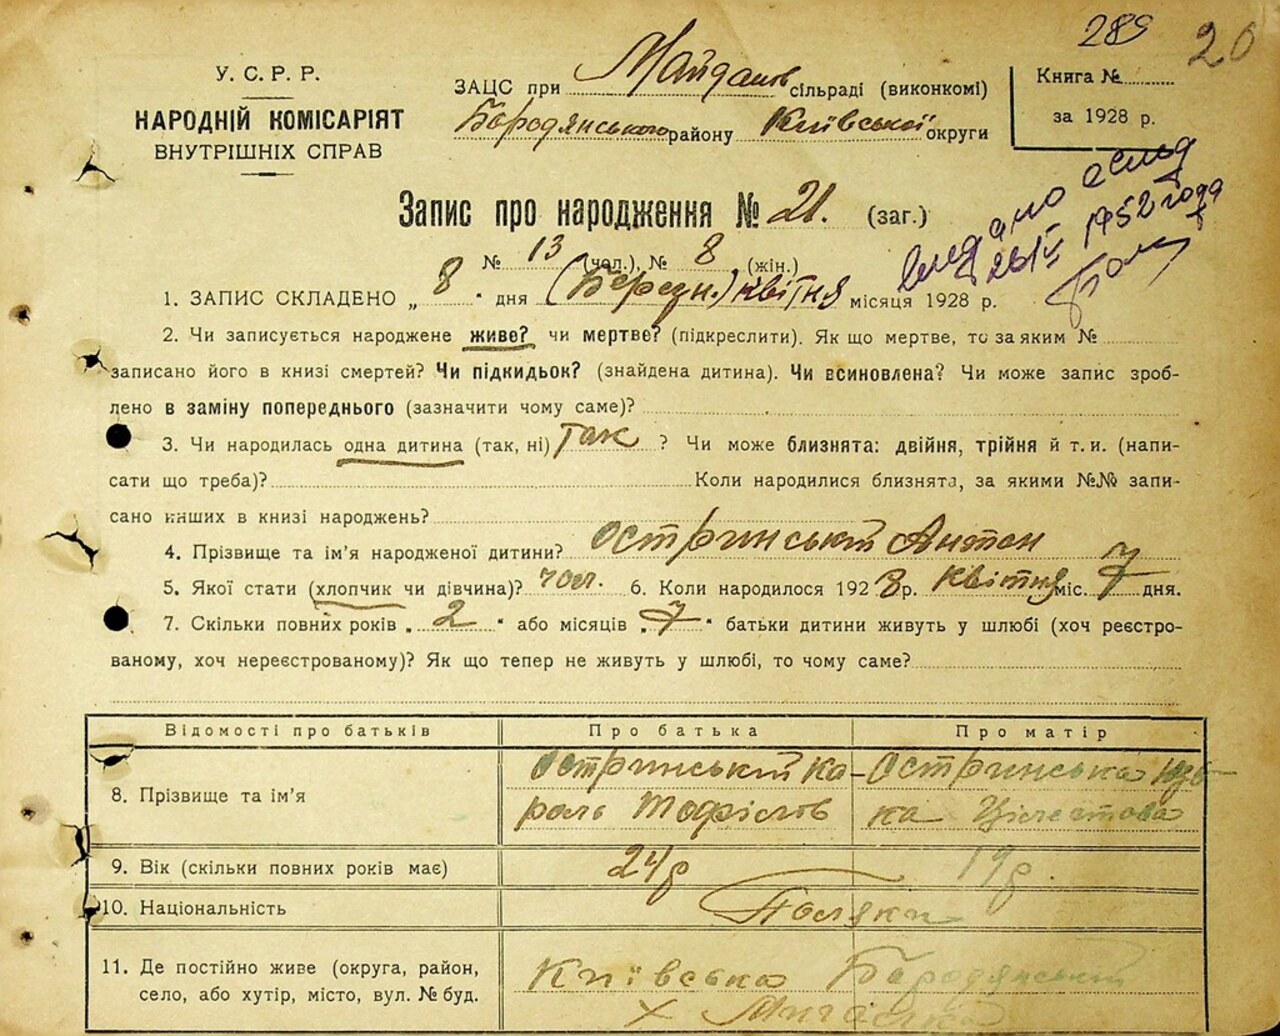 289 20
У. С. Р. Р.
НАРОДНІЙ КОМІСАРІЯТ
ВНУТРІШНІХ СПРАВ
ЗАЦС при Майданов сільраді (виконкомі)
Бородянського району Київської округи
Книга №
за 1928 р.
Запис про народження № 21. (заг.)
№ 13 (чол.), № 8 (жін.)
1952 года
1. ЗАПИС СКЛАДЕНО „ 8 " дня (Березн.) квітня місяця 1928 р.
2. Чи записується народжене живе? чи мертве? (підкреслити). Як що мертве, то за яким №
записано його в книзі смертей? Чи підкидьок? (знайдена дитина). Чи всиновлена? Чи може запис зроб-
лено в заміну попереднього (зазначити чому саме)?
3. Чи народилась одна дитина (так, ні) так ? Чи може близнята: двійня, трійня й т. и. (напи-
сати що треба)? Коли народилися близнята, за якими №№ запи-
сано инших в книзі народжень?
4. Прізвище та ім'я народженої дитини? Остринський Антон
5. Якої стати (хлопчик чи дівчина)? чол. 6. Коли народилося 1928 р. квітня міс. 7 дня.
7. Скільки повних років „ 2 " або місяців „ 7 " батьки дитини живуть у шлюбі (хоч реєстро-
ваному, хоч нереєстрованому)? Як що тепер не живуть у шлюбі, то чому саме?
Відомості про батьків Про батька Про матір
8. Прізвище та ім'я
Остринський Ка-
роль
Остринська Юзе-
ка
9. Вік (скільки повних років має) 24 р 19 р.
10. Національність Поляки
11. Де постійно живе (округа, район,
село, або хутір, місто, вул. № буд.
Київська Бородянський
х